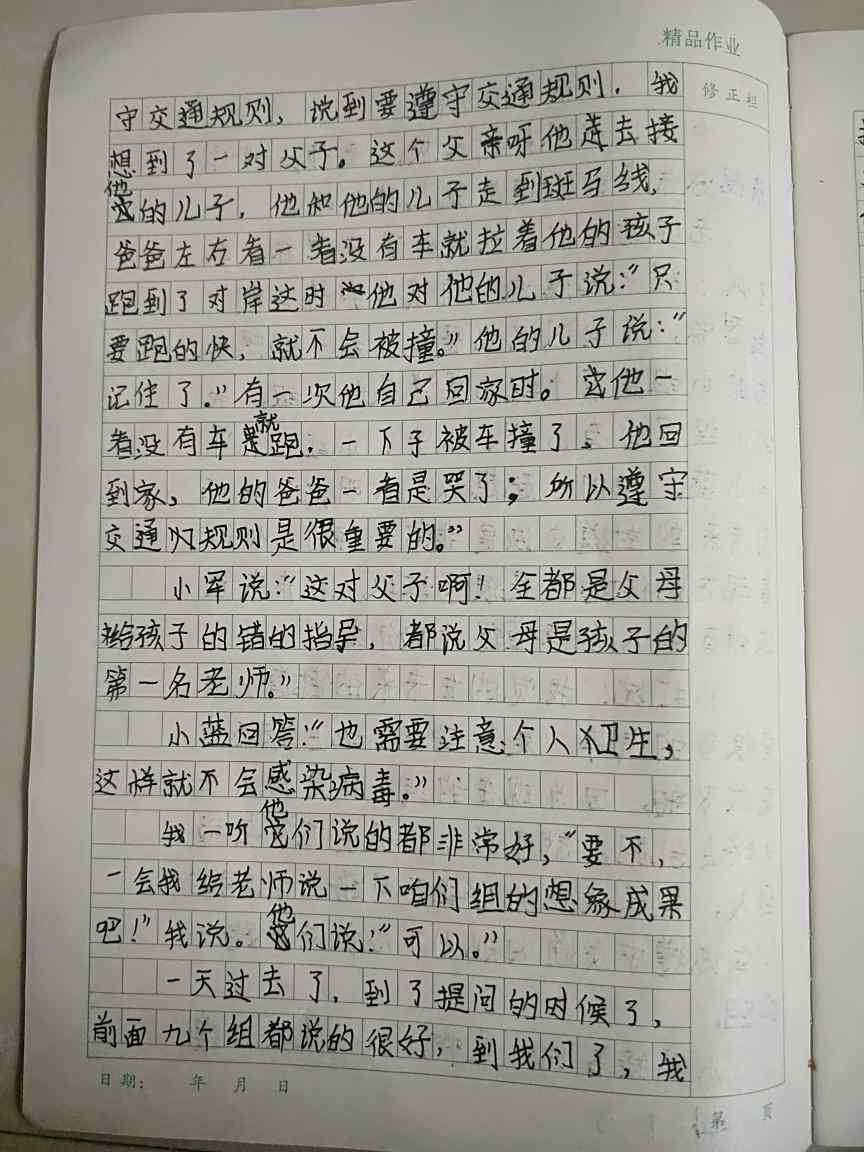 精品作业
修正栏
守交通规则，说到要遵守交通规则，我
想到了一对父子。这个父亲呀他连去接
他的儿子，他和他的儿子走到斑马线，
爸爸左右看一看没有车就拉着他的孩子
跑到了对岸这时他对他的儿子说：“只
要跑的快，就不会被撞。”他的儿子说：“
记住了。”有一次他自己回家时。他一
看没有车就跑，一下子被车撞了、他回
到家，他的爸爸一看是哭了；所以遵守
交通规则是很重要的。”
小军说：“这对父子啊！全都是父母
给孩子的错的指导，都说父母是孩子的
第一名老师。”
小蓝回答：“也需要注意个人卫生，
这样就不会感染病毒。”
我一听他们说的都非常好，“要不，
一会我给老师说一下咱们组的想象成果
吧！”我说。他们说：“可以。”
一天过去了，到了提问的时候了，
前面九个组都说的很好，到我们了，我
日期： 年 月 日
第 页